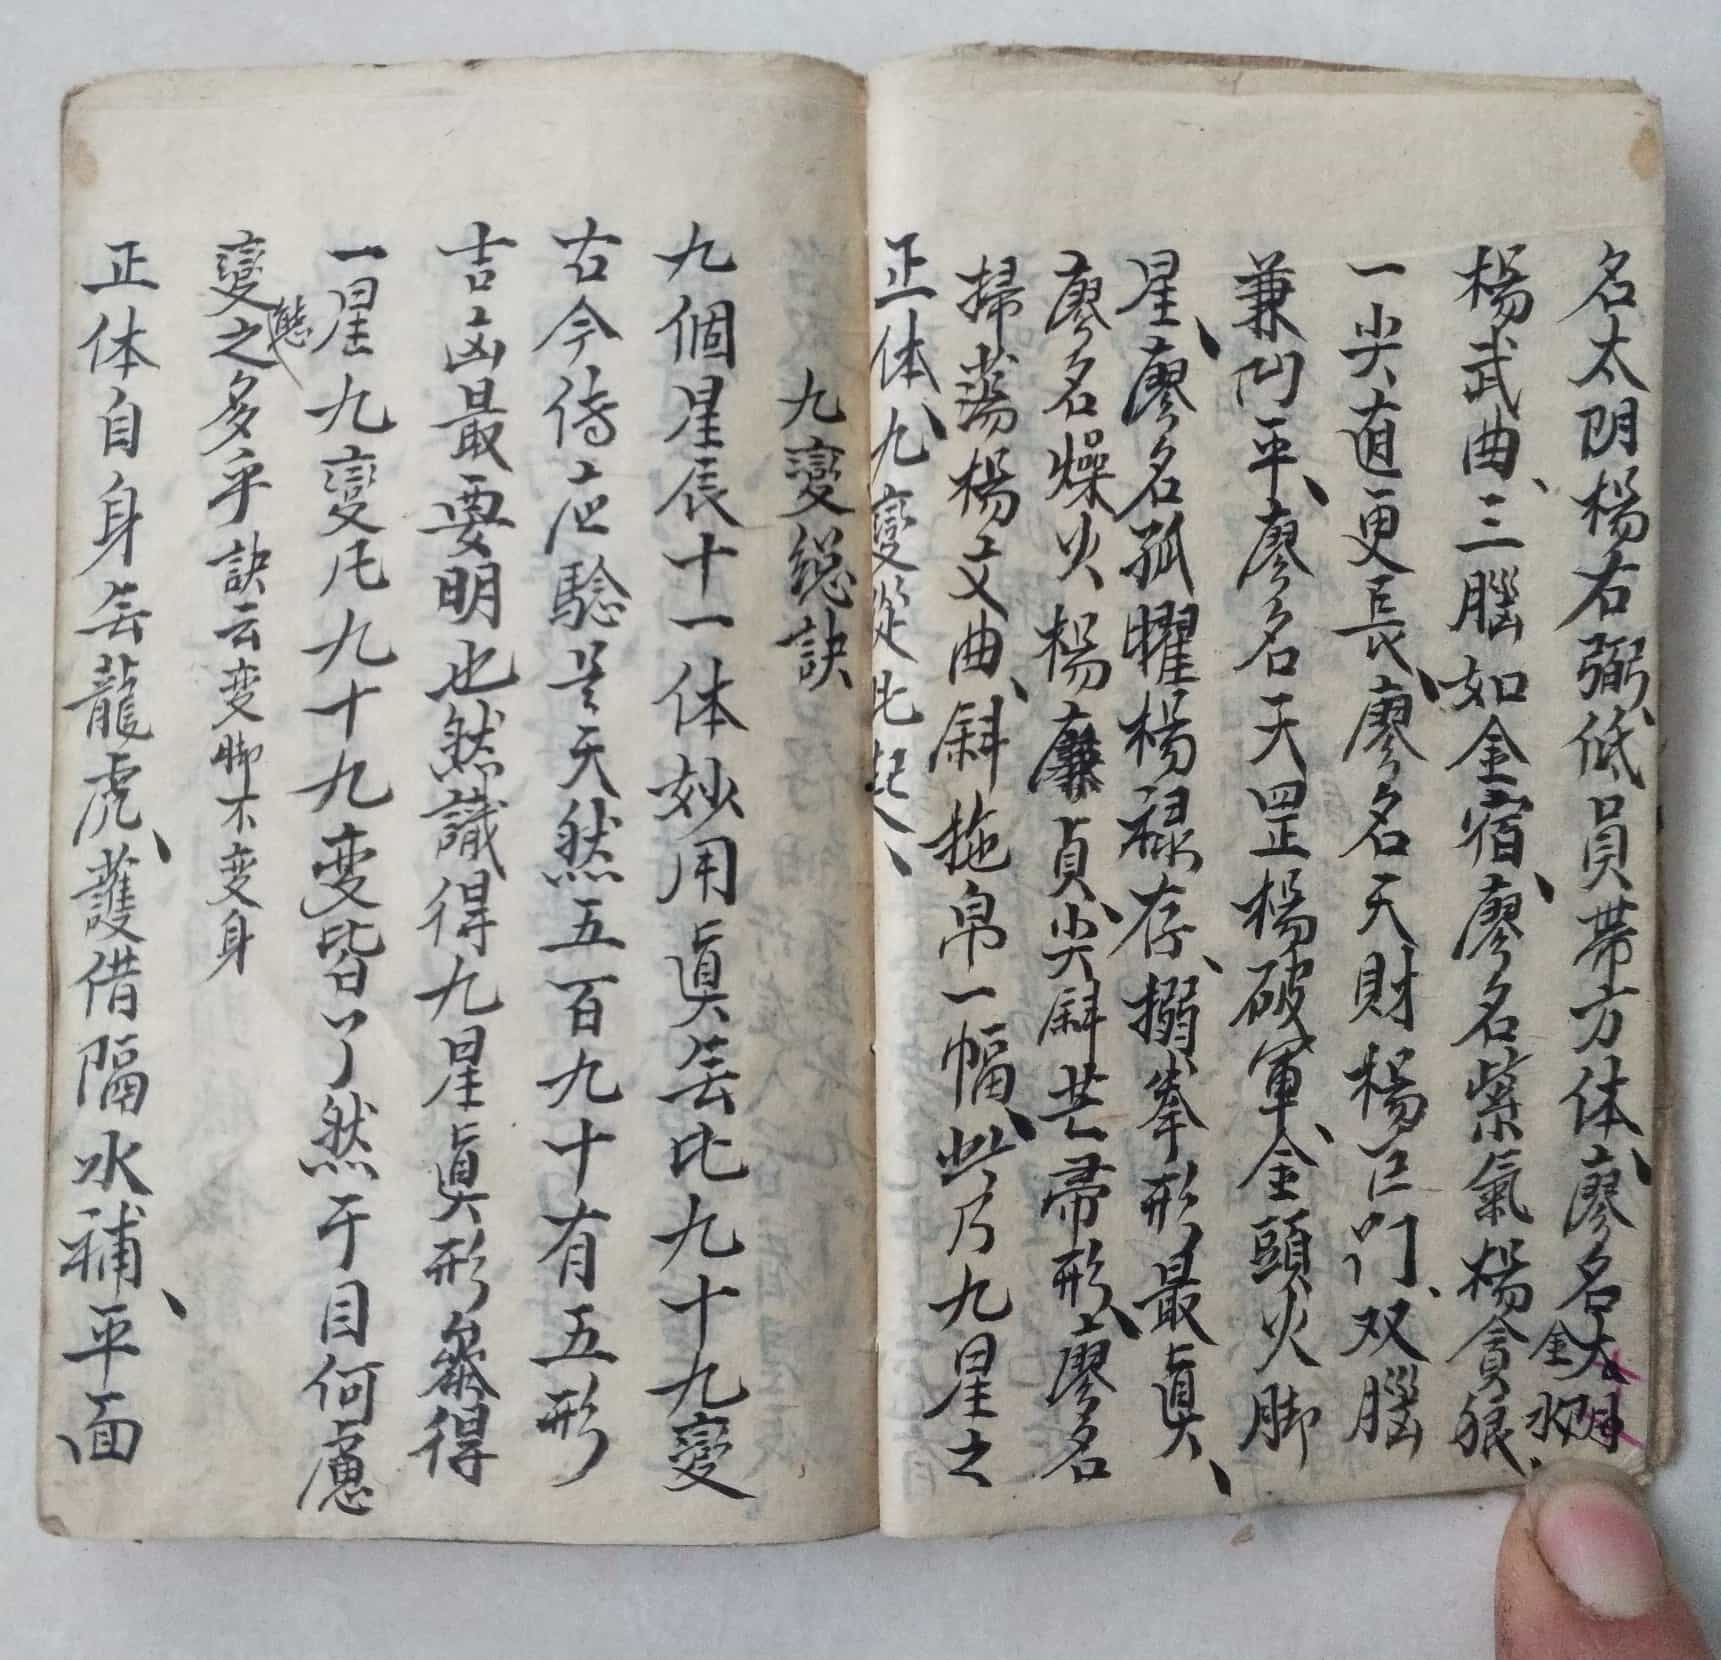 名太阴楊右弼、低員带方体、廖名太阴
金水
楊武曲、三腦如金宿、廖名紫氣楊貪狼、
一尖直更長、廖名天財楊巨门、双腦
兼凹平、廖名天罡楊破軍、金頭火脚
星、廖名孤曜楊禄存、搦拳形最真、
廖名燥火楊廉貞、尖斜芒帚形、廖名
掃蕩楊文曲、斜拖帛一幅、此乃九星之
正体、九變從此起、
九變総訣
九個星辰十一体妙用真无比九十九變
古今传应騐是天然五百九十有五形
吉凶最要明也然識得九星真形祭得
一星九變凡九十九变皆了然于目何慮
變之多乎訣云变脚不变身
態
正体自身無龍虎、護借隔水補、平面